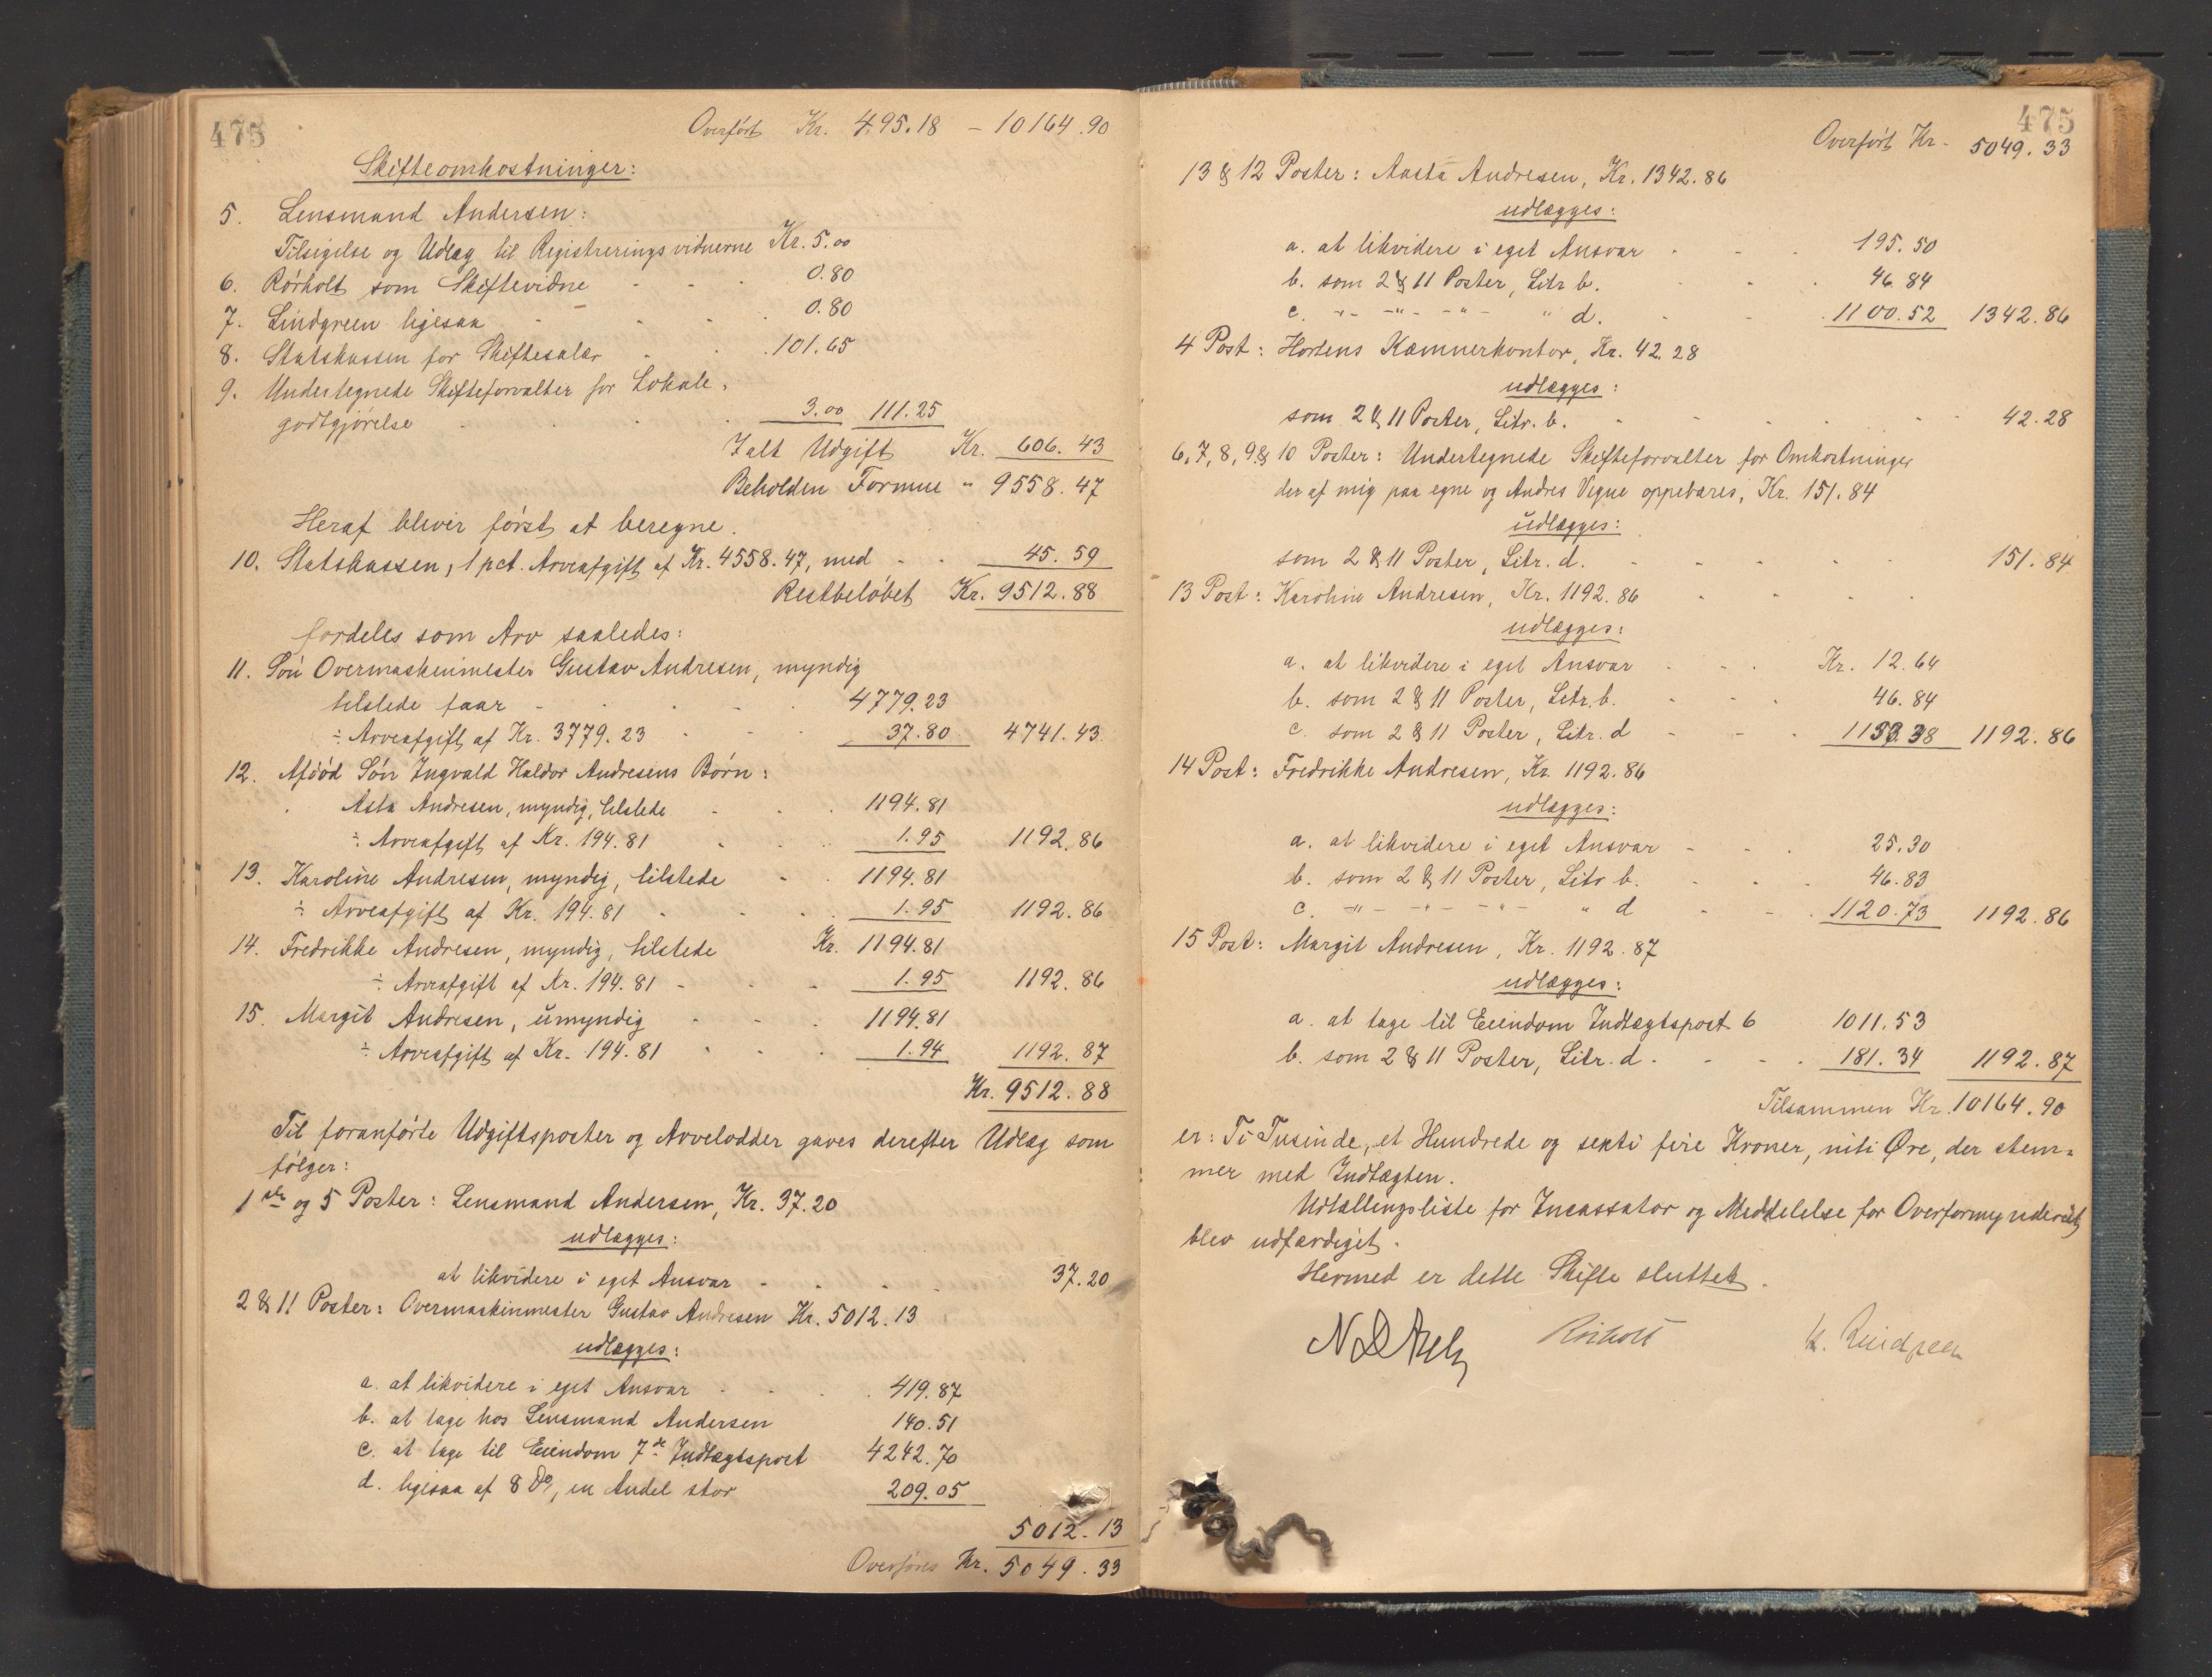 475
Overført Kr. 495.18 – 10164.90
Skifteomkostninger:
5. Lensmand Andersen:
Tilsigelse og Udlæg til Registreringsvidnerne Kr. 5.00
6. Rørholt som Skiftevidne - - - 0.80
7. Lindgreen ligesaa - - - 0.80
8. Statskassen for Skiftesalær - - 101.65
9. Undertegnede Skifteforvalter for Lokale-
godtgjørelse - - - 3.00 111.25
Ialt Udgift Kr. 606.43
Beholden Formue " 9558.47
Heraf bliver først at beregne.
10. Statskassen, 1 pct. Arveafgift af Kr. 4558.47, med - - 45.59
Restbeløbet Kr. 9512.88
fordeles som Arv saaledes:
11. Søn Overmaskinmester Gustav Andresen, myndig
tilstede faar - - - 4779.23
÷ Arveafgift af Kr. 3779.23 - - - 37.80 4741.43
12. Afdød Søn Ingvald Haldor Andresens Børn:
Asta Andresen, myndig, tilstede - - - 1194.81
÷ Arveafgift af Kr. 194.81 - - - 1.95 1192.86
13. Karoline Andresen, myndig, tilstede - - 1194.81
÷ Arveafgift af Kr. 194.81 - - - 1.95 1192.86
14. Fredrikke Andresen, myndig, tilstede Kr. 1194.81
÷ Arveafgift af Kr. 194.81 - - - 1.95 1192.86
15. Margit Andresen, umyndig - - - 1194.81
÷ Arveafgift af Kr. 194.81 - - - 1.94 1192.87
Kr. 9512.88
Til foranførte Udgiftsposter og Arvelodder gaves derefter Udlæg som
følger:
1ste og 5 Poster: Lensmand Andersen, Kr. 37.20
udlægges:
at likvidere i eget Ansvar - - - 37.20
2 & 11 Poster: Overmaskinmester Gustav Andresen Kr. 5012.13
udlægges:
a. at likvidere i eget Ansvar - - - 419.87
b. at tage hos Lensmand Andersen 140.51
c. at tage til Eiendom 7de Indtægtspost 4242.70
d. ligesaa af 8 Do, en Andel stor 209.05
5012.13
Overføres Kr. 5049.33
475
Overført Kr. 5049.33
13 & 12 Poster: Aasta Andresen, Kr. 1342.86
udlægges:
a. at likvidere i eget Ansvar - - - 195.50
b. som 2 & 11 Poster, Litr b. - - - 46.84
c. -"- -"- -"- " d. - - 1100.52 1342.86
4 Post: Hortens Kæmnerkontor, Kr. 42.28
udlægges:
som 2 & 11 Poster, Litr. b. - - - 42.28
6, 7, 8, 9 & 10 Poster: Undertegnede Skifteforvalter for Omkostninger
der af mig paa egne og Andres Vegne oppebæres, Kr. 151.84
udlægges:
som 2 & 11 Poster, Litr. d. - - - 151.84
13 Post: Karoline Andresen, Kr. 1192.86 - - -
udlægges:
a. at likvidere i eget Ansvar - - - Kr. 12.64
b. som 2 & 11 Poster, Litr. b. - - - 46.84
c. som 2 & 11 Poster, Litr. d - - - 1133.38 1192.86
14 Post: Fredrikke Andresen, Kr. 1192.86
udlægges:
a. at likvidere i eget Ansvar - - - 25.30
b. som 2 & 11 Poster, Litr b. - - - 46.83
c. -"- -"- -"- " d - - 1120.73 1192.86
15 Post: Margit Andresen, Kr. 1192.87
udlægges:
a. at tage til Eiendom Indtægtspost 6 1011.53
b. som 2 & 11 Poster, Litr. d. - - - 181.34 1192.87
Tilsammen Kr. 10164.90
er: Ti Tusinde, et Hundrede og sexti fire Kroner, niti Øre, der stem-
mer med Indtægten.
Udtællingsliste for Incassator og Meddelelse for Overformynderiet
blev udfærdiget.
Hermed er dette Skifte sluttet.
Rørholt